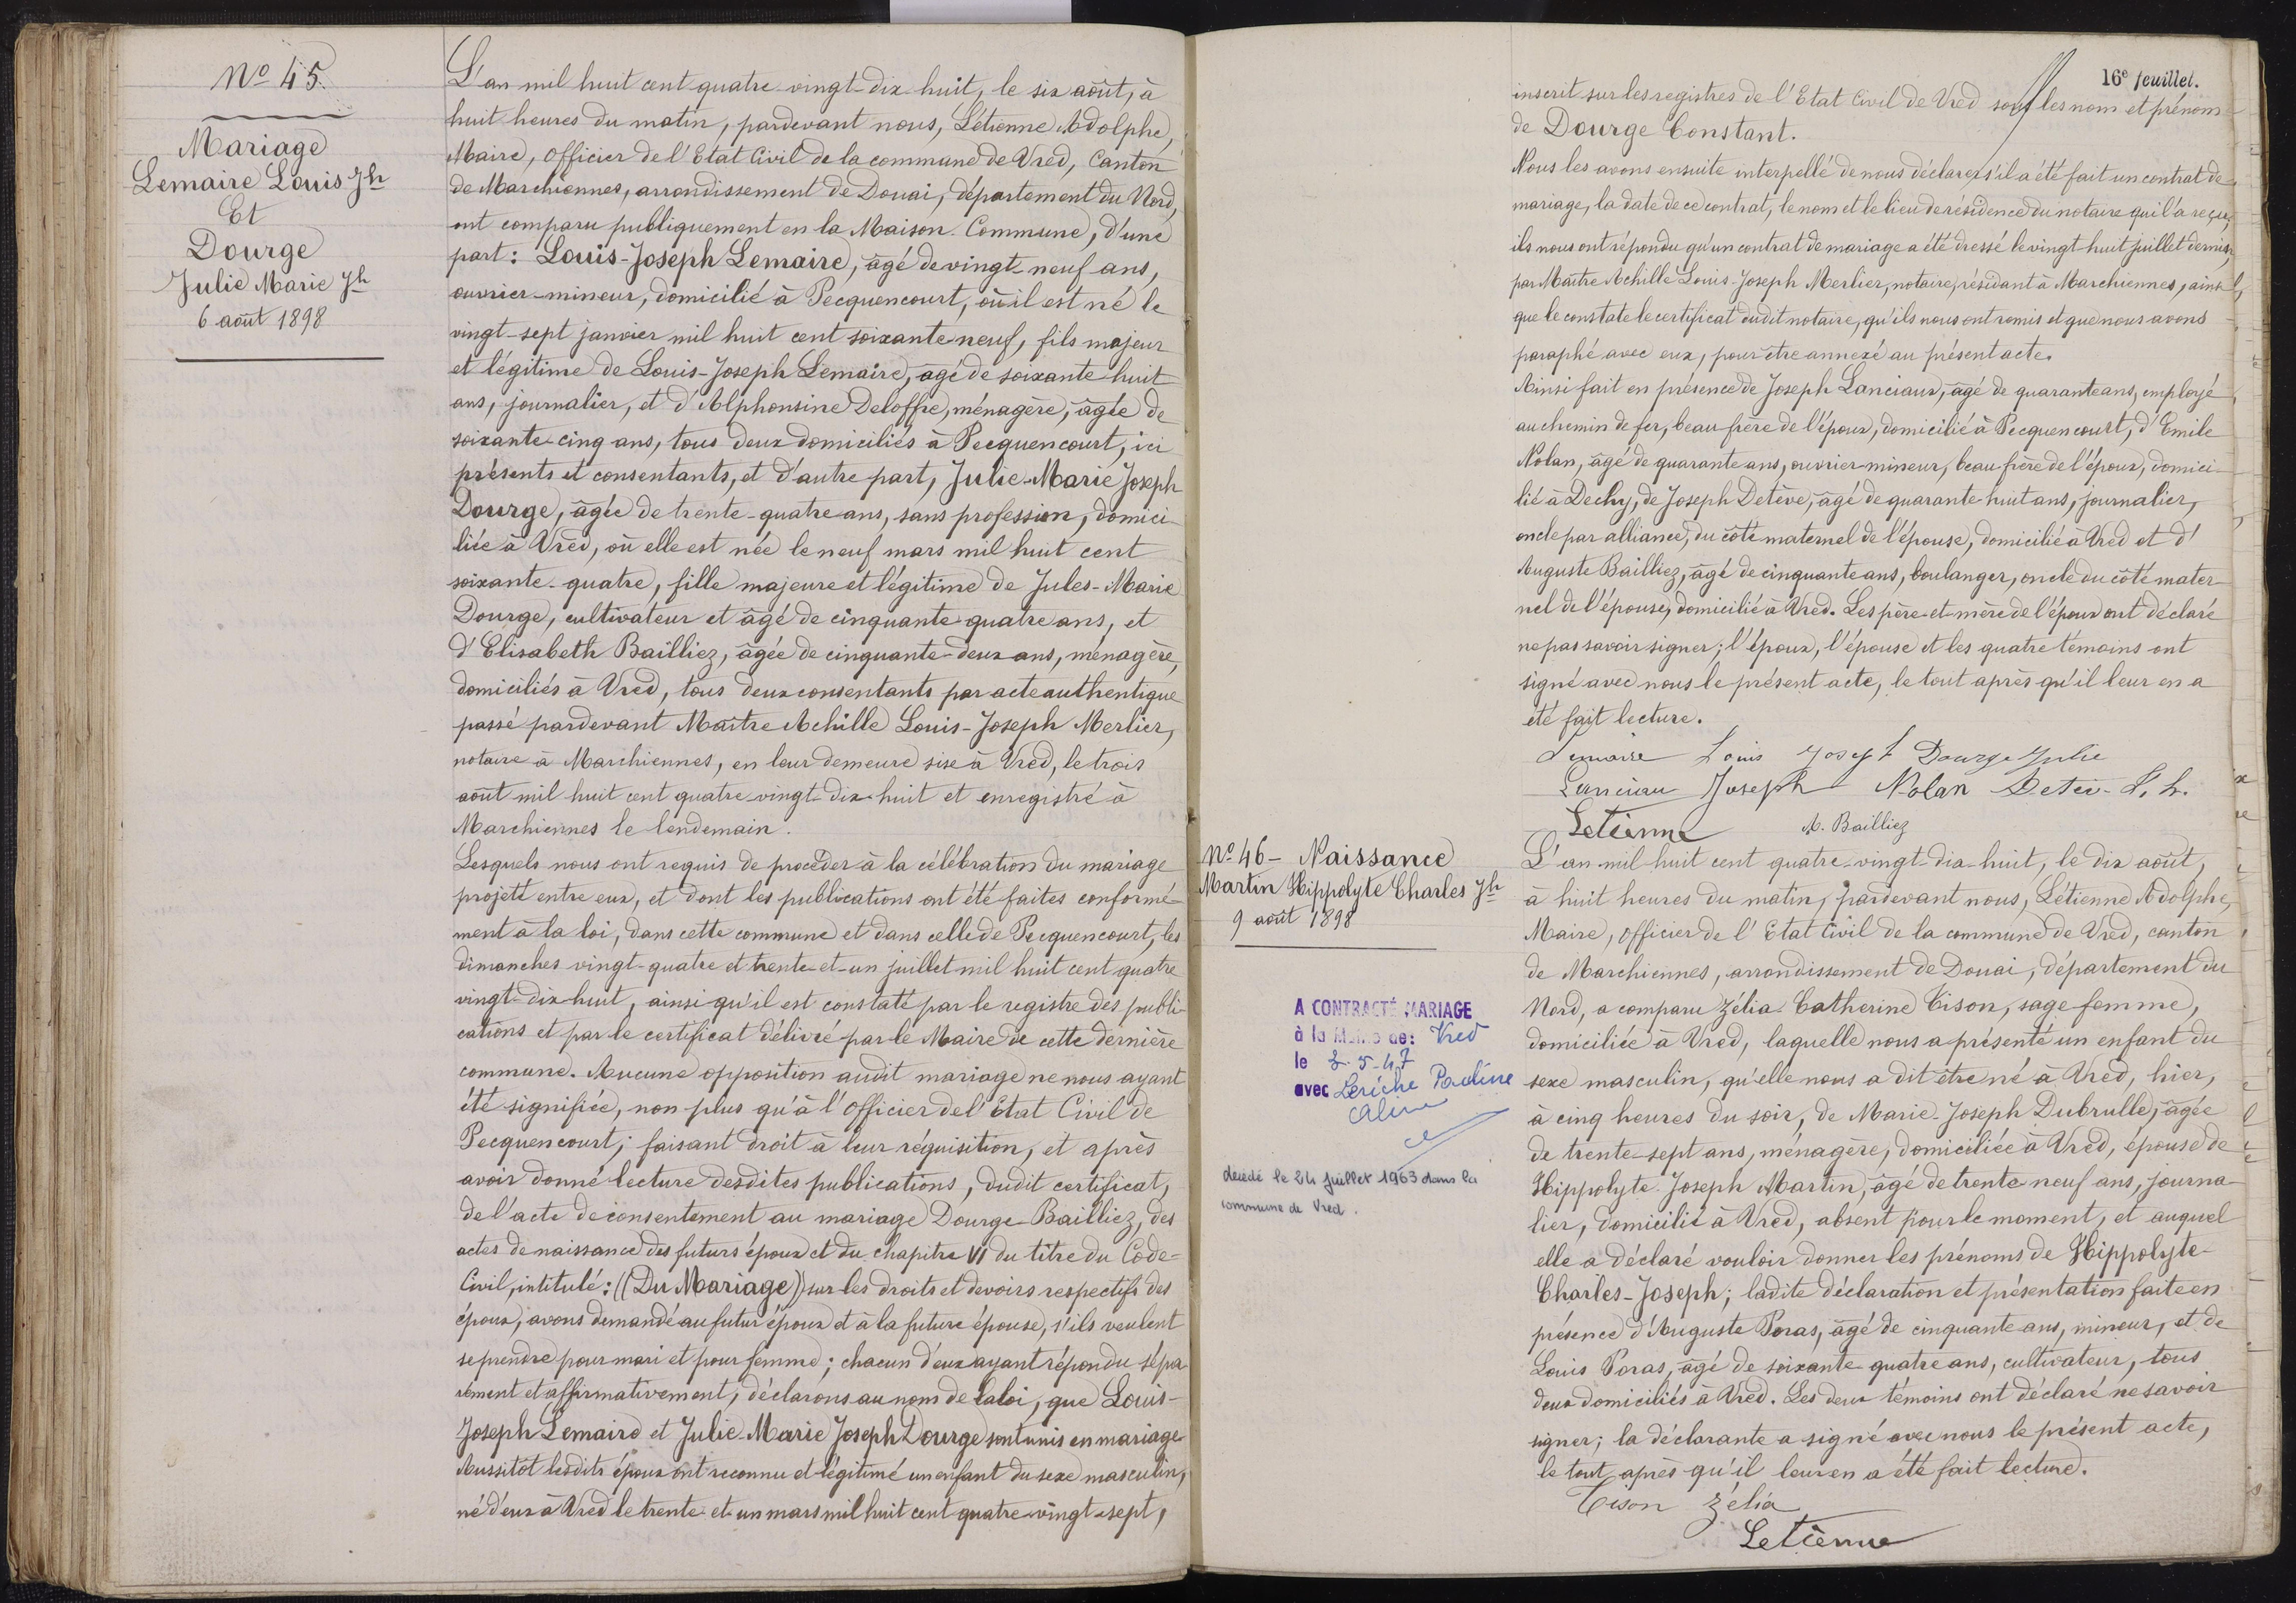 Nº 45.
Mariage
Lemaire Louis Jh
Et
Dourge
Julie Marie Jh
6 août 1898
L'an mil huit cent quatre-vingt-dix huit, le six août, à
huit heures du matin, pardevant nous, Létienne Adolphe,
Maire, officier de l'Etat Civil de la commune de Vred, Canton
de Marchiennes, arrondissement de Douai, département du Nord,
ont comparu publiquement en la Maison Commune, d'une
part: Louis-Joseph Lemaire, âgé de vingt-neuf ans,
ouvrier-mineur, domicilié à Pecquencourt, où il est né le
vingt-sept janvier mil huit cent soixante-neuf, fils majeur
et légitime de Louis-Joseph Lemaire, âgé de soixante-huit
ans, journalier, et d'Alphonsine Deloffre, ménagère, âgée de
soixante-cinq ans, tous deux domiciliés à Pecquencourt, ici
présents et consentants, et d'autre part, Julie-Marie Joseph
Dourge, âgée de trente-quatre ans, sans profession, domici-
liée à Vred, où elle est née le neuf mars mil huit cent
soixante-quatre, fille majeure et légitime de Jules-Marie
Dourge, cultivateur et âgé de cinquante-quatre ans, et
d'Elisabeth Bailliez, âgée de cinquante-deux ans, ménagère,
domiciliés à Vred, tous deux consentants par acte authentique
passé pardevant Maître Achille Louis-Joseph Merlier,
notaire à Marchiennes, en leur demeure sise à Vred, le trois
août mil huit cent quatre-vingt-dix-huit et enregistré à
Marchiennes le lendemain.
Lesquels nous ont requis de procéder à la célébration du mariage
projeté entre eux, et dont les publications ont été faites conformé-
ment à la loi, dans cette commune et dans celle de Pecquencourt, les
dimanches vingt-quatre et trente-et-un juillet mil huit cent quatre
vingt-dix-huit, ainsi qu'il est constaté par le registre des publi-
cations et par le certificat délivré par le Maire de cette dernière
commune. Aucune opposition audit mariage ne nous ayant
été signifiée, non plus qu'à l'Officier de l'Etat Civil de
Pecquencourt; faisant droit à leur réquisition, et après
avoir donné lecture desdites publications, dudit certificat,
de l'acte de consentement au mariage Dourge-Bailliez, des
actes de naissance des futurs époux et du chapitre VI du titre du Code-
Civil, intitulé: ((Du Mariage)) sur les droits et devoirs respectifs des
époux, avons demandé au futur époux et à la future épouse, s'ils veulent
se prendre pour mari et pour femme; chacun d'eux ayant répondu sépa-
rément et affirmativement, déclarons au nom de la loi, que Louis-
Joseph Lemaire et Julie Marie Joseph Dourge sont unis en mariage
Aussitôt lesdits époux ont reconnu et légitimé un enfant du sexe masculin,
né d'eux à Vred le trente-et-un mars mil huit cent quatre-vingt-sept,
16e feuillet.
inscrit sur les registres de l'Etat Civil de Vred sous les nom et prénom
de Dourge Constant.
Nous les avons ensuite interpellé de nous déclarer s'il a été fait un contrat de
mariage, la date de ce contrat, le nom et le lieu de résidence du notaire qui l'a reçu;
ils nous ont répondu qu'un contrat de mariage a été dressé le vingt-huit juillet dernier,
par Maître Achille Louis-Joseph Merlier, notaire, résidant à Marchiennes, ainsi
que le constate le certificat dudit notaire, qu'ils nous ont remis et que nous avons
paraphé avec eux, pour être annexé au présent acte.
Ainsi fait en présence de Joseph Lanciaux, âgé de quarante ans, employé
au chemin de fer, beau frère de l'époux, domicilié à Pecquencourt, d'Emile
Nolan, âgé de quarante ans, ouvrier-mineur, beau-frère de l'époux, domici-
lié à Dechy, de Joseph Detève, âgé de quarante-huit ans, journalier,
oncle par alliance, du côté maternel de l'épouse, domicilié à Vred et d'
Auguste Bailliez, âgé de cinquante ans, boulanger, oncle du côté mater-
nel de l'épouse, domicilié à Vred. Les père et mère de l'époux ont déclaré
ne pas savoir signer; l'époux, l'épouse et les quatre témoins ont
signé avec nous le présent acte, le tout après qu'il leur en a
été fait lecture.
Lemaire Louis Joseph Dourge Julie
Lanciau Joseph Nolan
Létienne A. Bailliez
Nº 46 - Naissance
Martin Hippolyte Charles Jh
9 août 1898
A CONTRACTÉ MARIAGE
à la Mairie de: Vred
le 5-47
avec Leriche Pauline
décédé le 24 juillet 1963 dans la
commune de Vred.
L'an mil huit cent quatre-vingt-dix-huit, le dix août,
à huit heures du matin, pardevant nous, Létienne Adolphe,
Maire, officier de l'Etat Civil de la commune de Vred, canton
de Marchiennes, arrondissement de Douai, département du
Nord, a comparu Zélia Catherine Tison, sage-femme,
domiciliée à Vred, laquelle nous a présenté un enfant du
sexe masculin, qu'elle nous a dit être né à Vred, hier,
à cinq heures du soir, de Marie-Joseph Dubrulle, âgée
de trente-sept ans, ménagère, domiciliée à Vred, épouse de
Hippolyte-Joseph Martin, âgé de trente-neuf ans, journa-
lier, domicilié à Vred, absent pour le moment, et auquel
elle a déclaré vouloir donner les prénoms de Hippolyte-
Charles-Joseph; ladite déclaration et présentation faite en
présence d'Auguste Poras, âgé de cinquante ans, mineur, et de
Louis Poras, âgé de soixante-quatre ans, cultivateur, tous
deux domiciliés à Vred. Les deux témoins ont déclaré ne savoir
signer; la déclarante a signé avec nous le présent acte,
le tout après qu'il leur en a été fait lecture.
Tison Zélia
Létienne